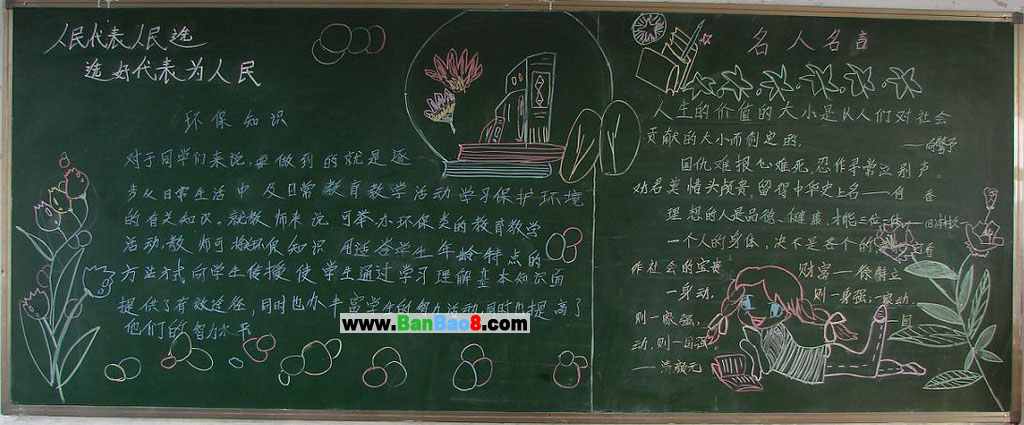 人民代表人民选
选好代表为人民
环保知识
对于同学们来说,要做到的就是逐
步从日常生活中及日常教育教学活动学习保护环境
的有关知识。就教师来说可举办环保类的教育教学
活动,教师可将环保知识用适合学生年龄特点的
方法方式向学生传授使学生通过学习理解基本知识面
提供了有效途径,同时也办丰富学生的智力活动同时也提高了
他们的智力水平
www.BanBao8.com
名人名言
人生的价值的大小是从人们对社会
贡献的大小而制定的。
国仇难报心难死,忍作寻常泣别声。
劝君莫惜头颅贵,留得中华史上名——何香
理想的人是品德、健康、才能三位一体
一个人的身体,决不是个的
作社会的宝贵财富——徐特立
一身动,则一身强;一家动,
则一家强,一国
动,则一国强
——颜元